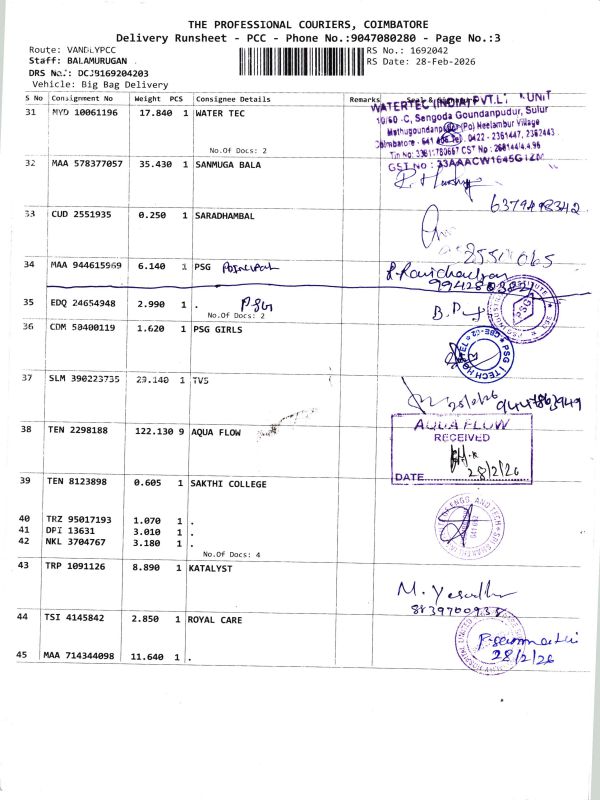 THE PROFESSIONAL COURIERS, COIMBATORE
Delivery Runsheet - PCC - Phone No.:9047080280 - Page No.:3
Route: VANDLYPCC
RS No.: 1692042
Staff: BALAMURUGAN
RS Date: 28-Feb-2026
DRS No.: DCJ9169204203
Vehicle: Big Bag Delivery
S No Consignment No Weight PCS Consignee Details Remarks
31 MYD 10061196 17.840 1 WATER TEC
No.Of Docs: 2
WATERTEC (INDIA) PVT.LT UNIT
10/60 -C, Sengoda Goundanpudur, Sulur
(Po) Neelambur Village
0422 - 2361447, 2362443
32 MAA 578377057 35.430 1 SANMUGA BALA
6379498342
33 CUD 2551935 0.250 1 SARADHAMBAL
34 MAA 944615969 6.140 1 PSG
35 EDQ 24654948 2.990 1 . PSG
No.Of Docs: 2
36 CDM 50400119 1.620 1 PSG GIRLS
37 SLM 390223735 23.140 1 TVS
38 TEN 2298188 122.130 9 AQUA FLOW
AQUA FLOW
RECEIVED
28/2/26
DATE
39 TEN 8123898 0.605 1 SAKTHI COLLEGE
40 TRZ 95017193 1.070 1 .
41 DPI 13631 3.010 1 .
42 NKL 3704767 3.180 1 .
No.Of Docs: 4
43 TRP 1091126 8.890 1 KATALYST
44 TSI 4145842 2.850 1 ROYAL CARE
28/2/26
45 MAA 714344098 11.640 1 .